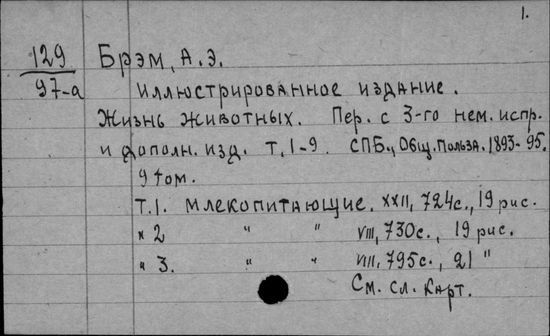 1.
129 Брэм, А.Э.
97-а иллюстрированное издание.
Жизнь животных. Пер. с 3-го нем. испр.
и дополн. изд. т. 1-9. СПБ., Общ. Польза. 1893-95.
9 том.
т.1. млекопитающие. XXII, 724с., 19 рис.
" 2 " " VIII, 730с., 19 рис.
" 3. " " VIII, 795с., 21 "
См. сл. карт.